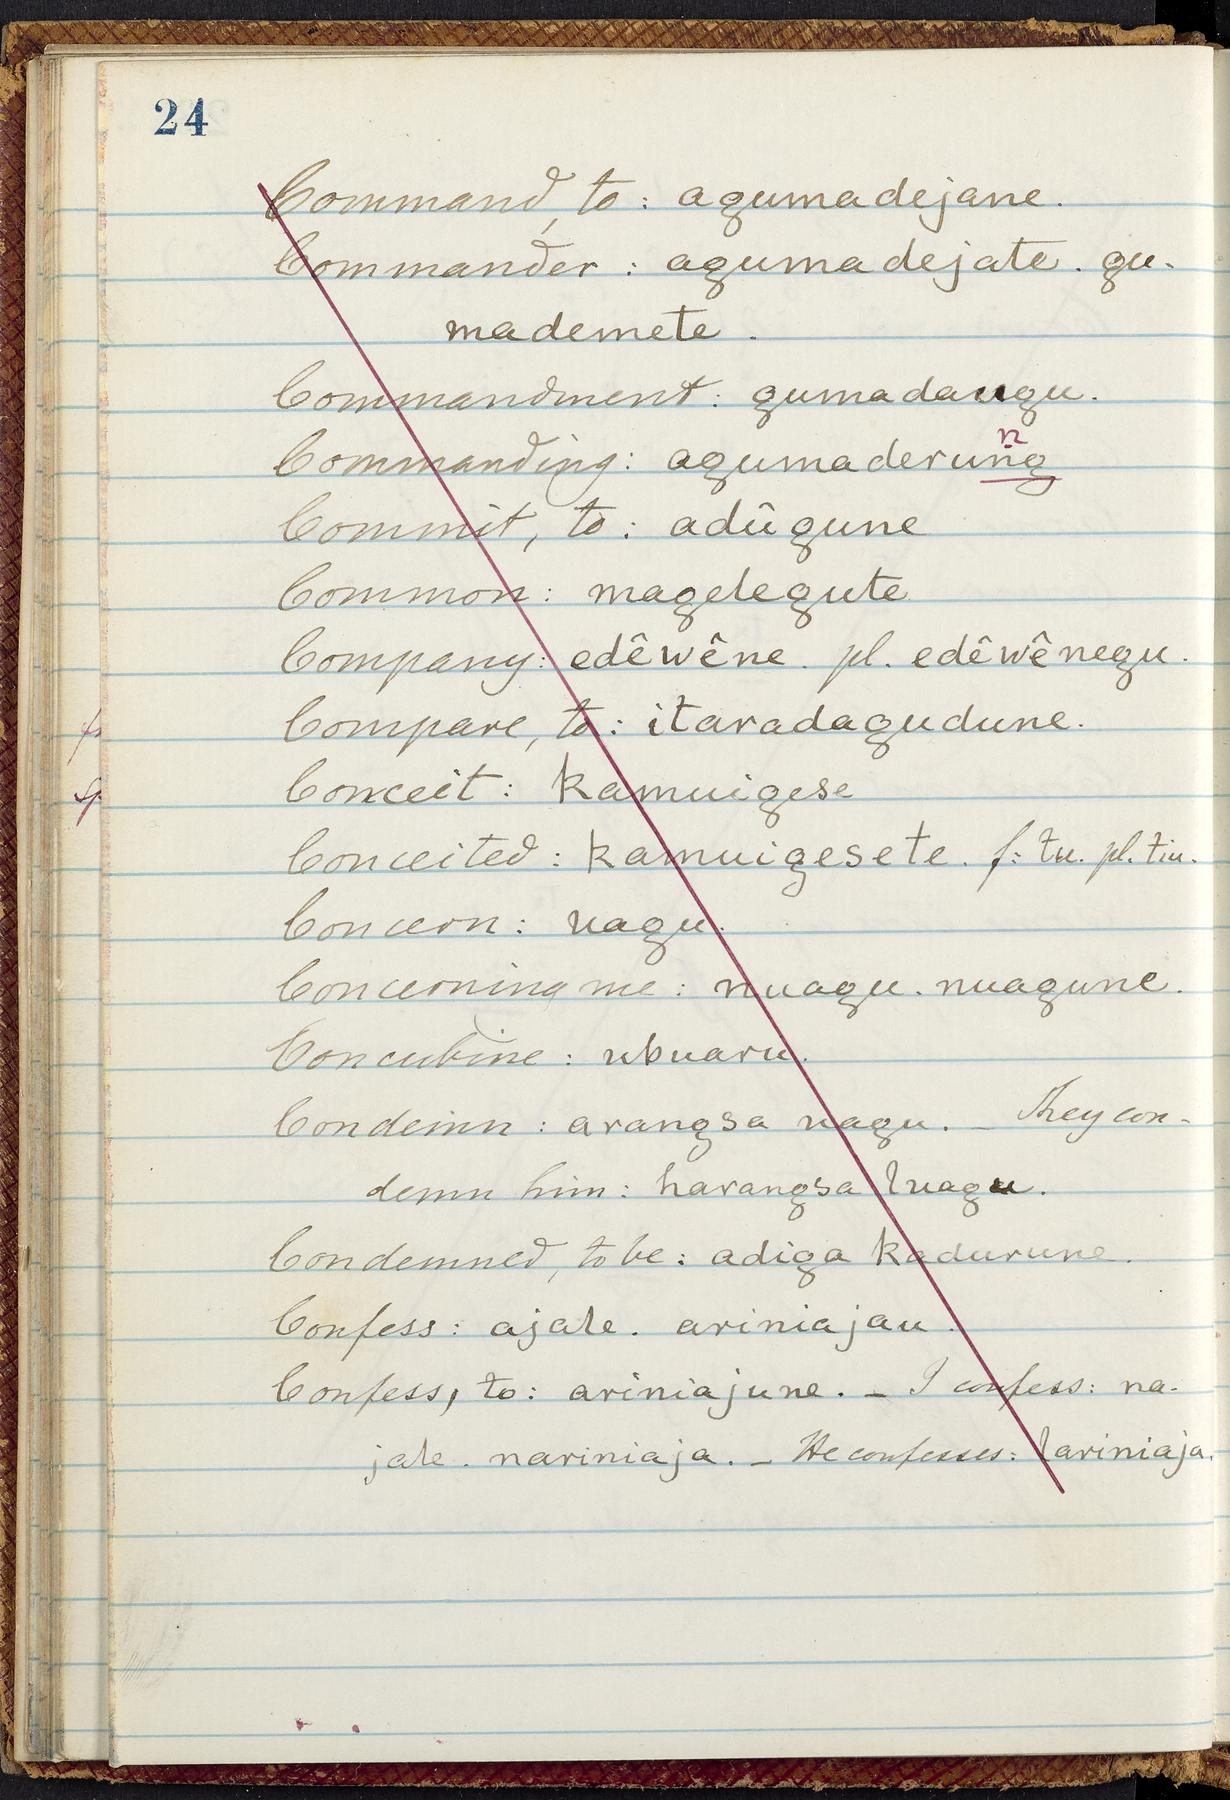 24
Command, to: agumadejane.
Commander: agumadejate. gu-
mademete.
Commandment: gumadaugu.
n
Commanding: agumaderung
Commit, to: adûgune
Common: magelegute
Company: edêwêne. pl. edêwênegu.
Compare, to: itaradagudune.
Conceit: kamuigese
Conceited: kamuigesete. f: tu. pl. tiu.
Concern: uagu.
Concerning me: nuagu. nuagune.
Concubine: ubuaru.
Condemn: arangsa uagu. _ They con-
demn him: harangsa luagu.
Condemned, to be: adiga kadurune.
Confess: ajale. ariniajau.
Confess, to: ariniajune. _ I confess: na-
jale. nariniaja. _ He confesses: lariniaja.